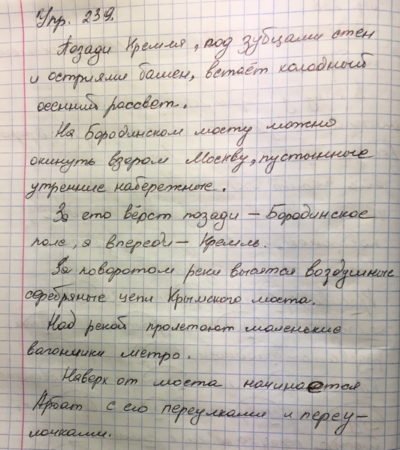 Упр. 239.
Позади Кремля, под зубцами стен
и остриями башен, встаёт холодный
осенний рассвет.
На Бородинском мосту можно
окинуть взором Москву, пустынные
утренние набережные.
За сто вёрст позади – Бородинское
поле, а впереди – Кремль.
За поворотом реки высятся воздушные
серебряные цепи Крымского моста.
Над рекой пролетают маленькие
вагончики метро.
Наверх от моста начинается
Арбат с его переулками и переу-
лочками.